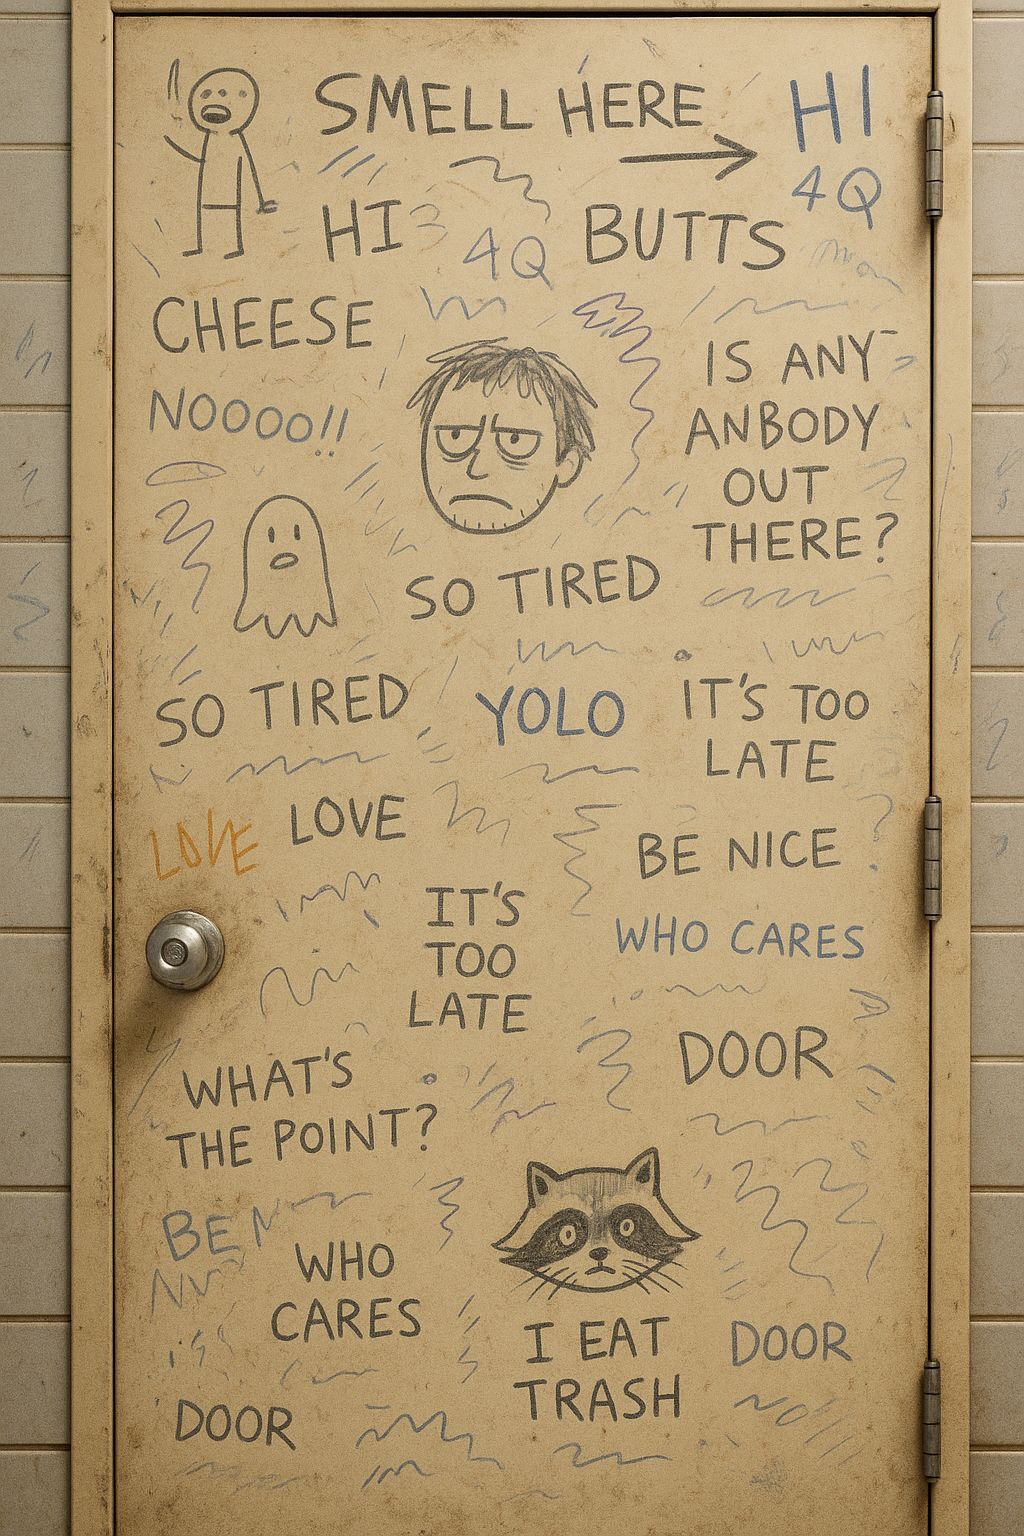 SMELL HERE
HI
4Q
HI
4Q
BUTTS
CHEESE
NOOOO!!
IS ANY
ANBODY
OUT
THERE?
SO TIRED
SO TIRED
YOLO
IT'S TOO
LATE
LOVE
LOVE
BE NICE
IT'S
TOO
LATE
WHO CARES
DOOR
WHAT'S
THE POINT?
BE
WHO
CARES
I EAT
TRASH
DOOR
DOOR